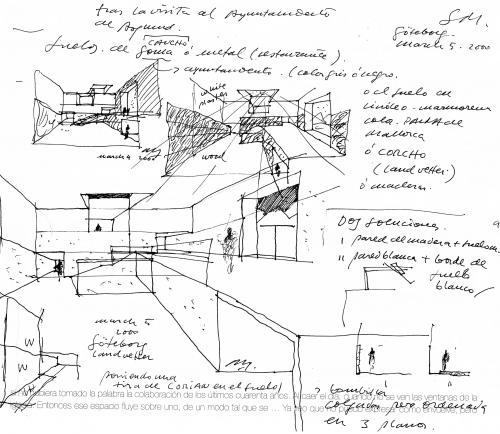 tras la visita al Ayuntamiento
de Asplund.
S.M.
Göteborg
march 5. 2000
CAUCHO
suelos de goma ó metal (restaurante).
→ ayuntamiento. (color gris ó negro.
white
plaster
wood
march 2
2000
ó el suelo en
linóleo - marmoleum
cola. PALMA de
Mallorca
ó CORCHO
(Landvetter)
ó madera
Dos soluciones.
pared de madera +
pared blanca + borde de
suelo
blanco
march 5
2000
Göteborg
Landvetter
poniendo una
tira de CORIAN en el suelo
W W
W
hubiera tomado la palabra la colaboración de los últimos cuarenta años. Al caer el día, cuando no se ven las ventanas de la
Entonces ese espacio fluye sobre uno, de un modo tal que se … Ya
como envuelve, pero
también
pero ordenaría
en 3 planos.